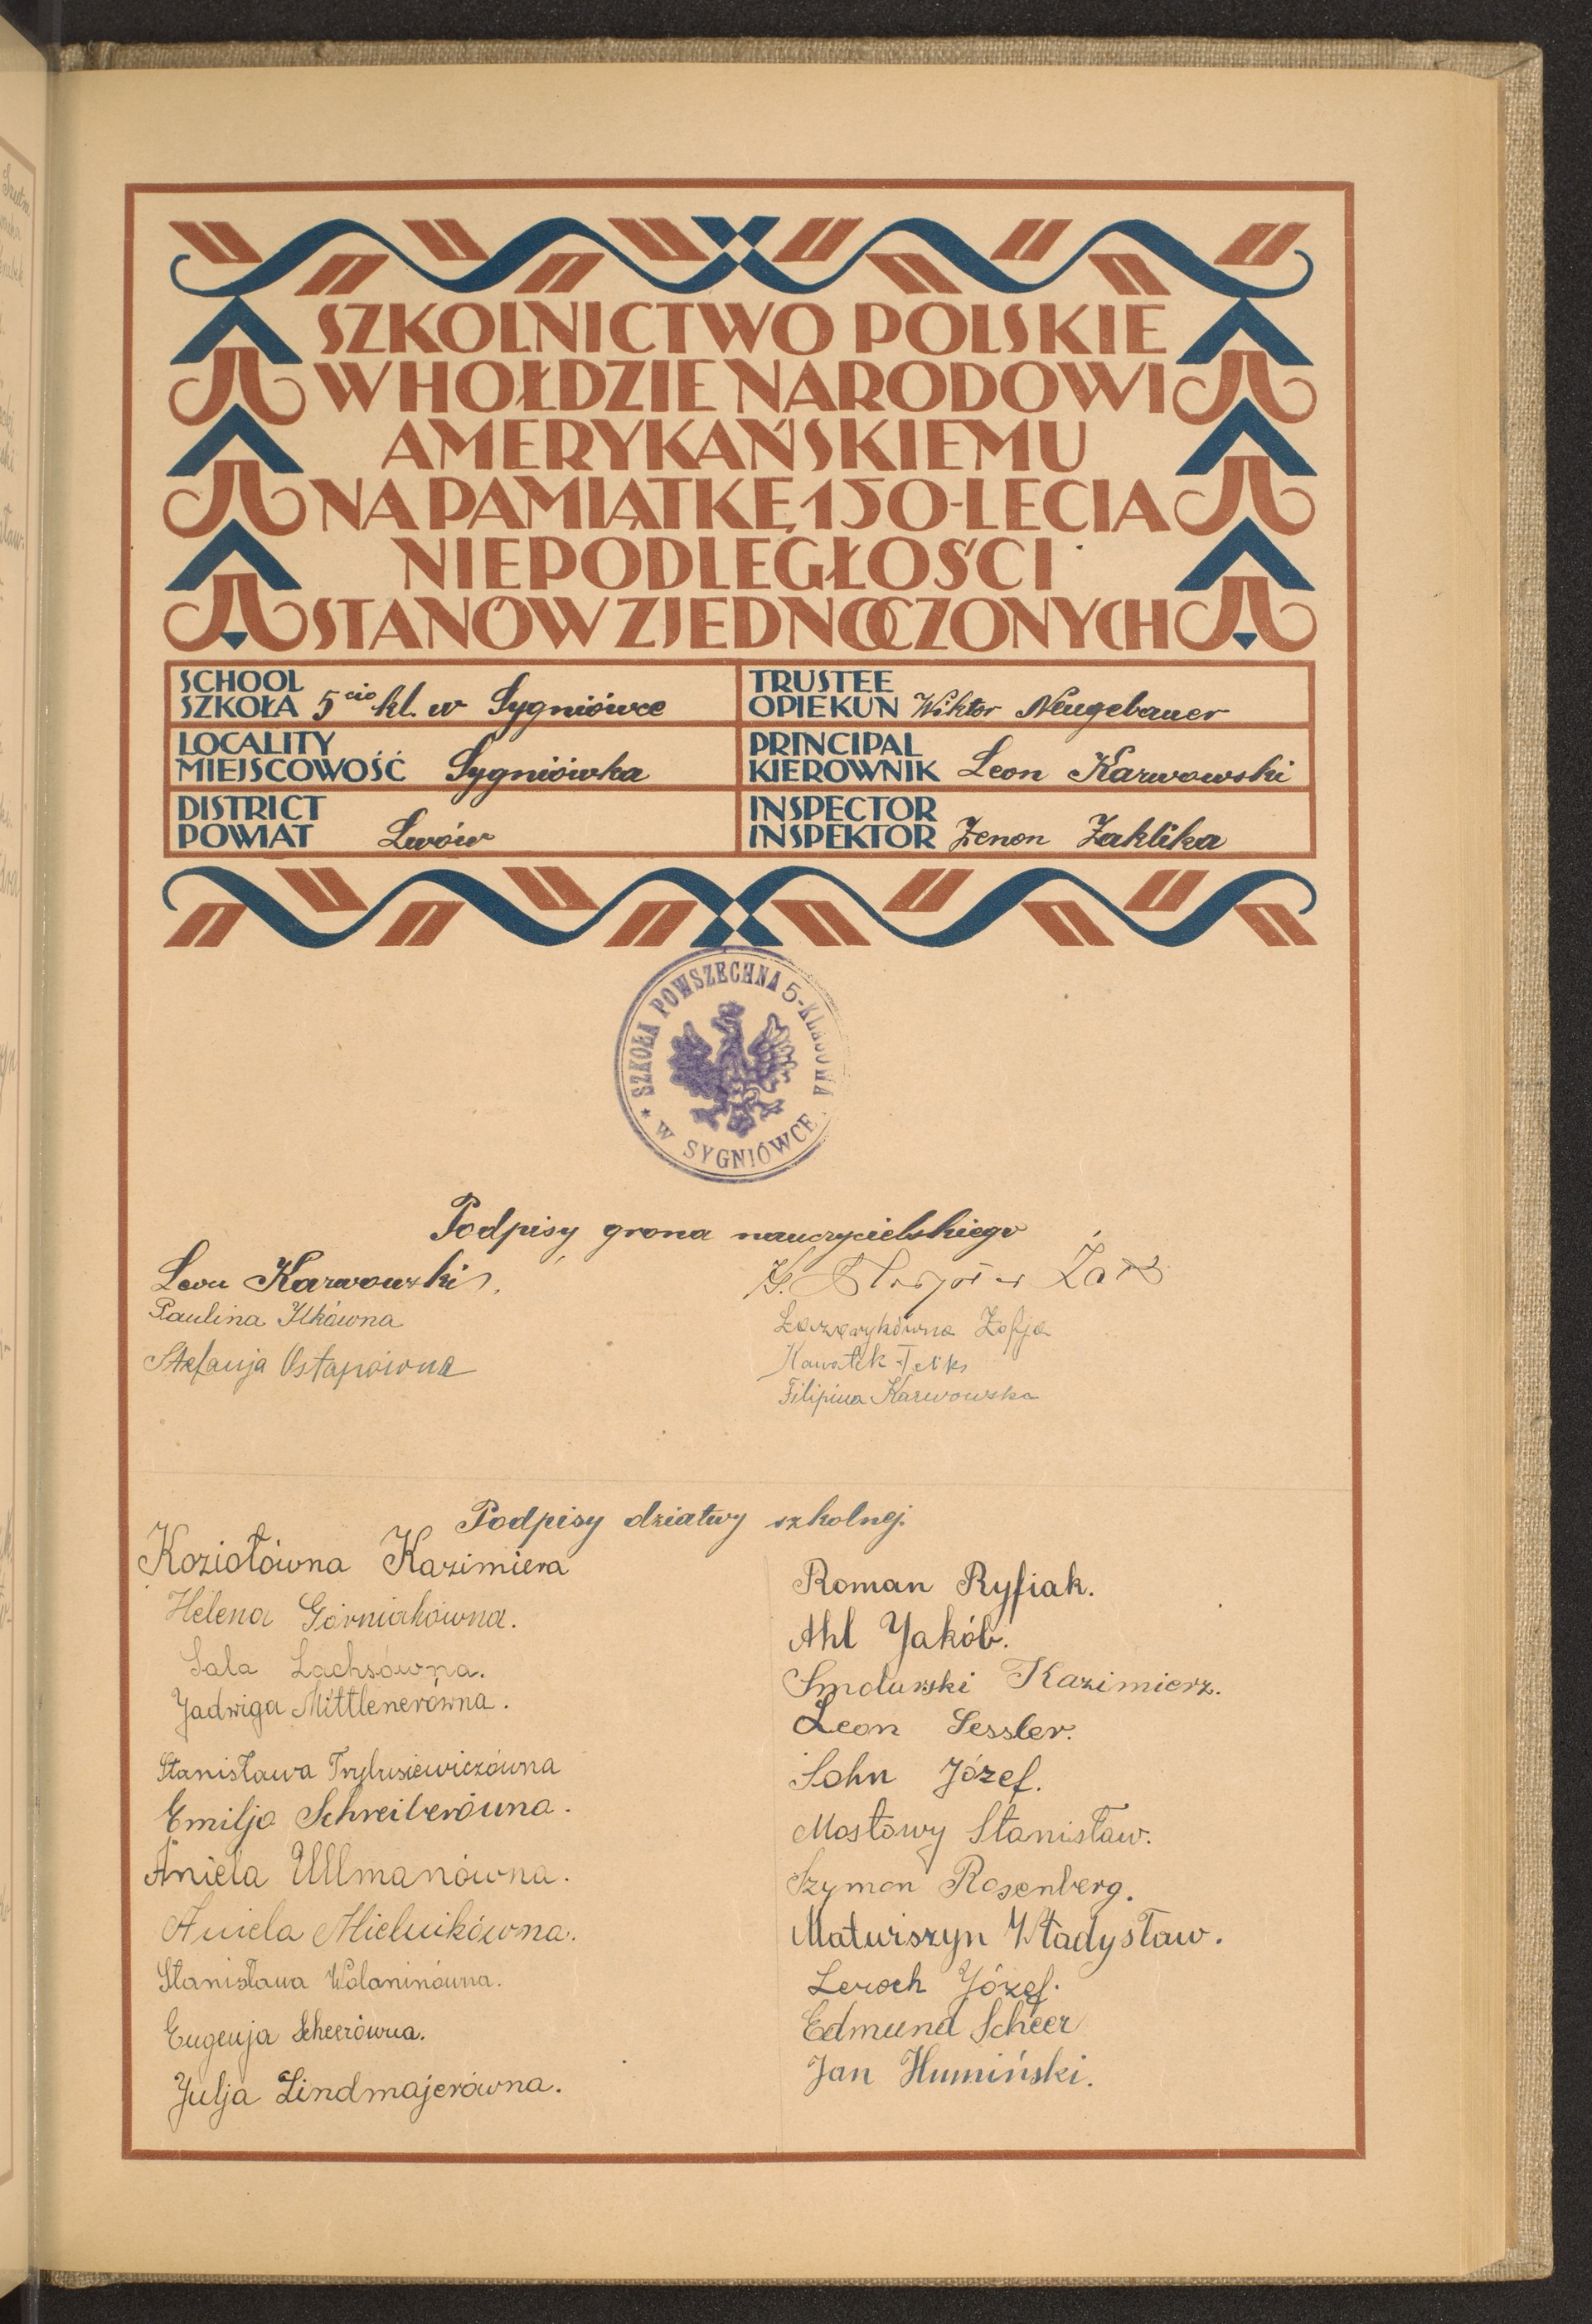 SZKOLNICTWO POLSKIE
W HOŁDZIE NARODOWI
AMERYKAŃSKIEMU
NA PAMIĄTKĘ 150-LECIA
NIEPODLEGŁOŚCI
STANÓW ZJEDNOCZONYCH
SCHOOL
SZKOŁA 5cio kl. w Sygniówce
TRUSTEE
OPIEKUN Wiktor Neugebauer
LOCALITY
MIEJSCOWOŚĆ Sygniówka
PRINCIPAL
KIEROWNIK Leon Karwowski
DISTRICT
POWIAT Lwów
INSPECTOR
INSPEKTOR Zenon Zaklika
SZKOŁA POWSZECHNA 5-KLASOWA
* W SYGNIÓWCE
Podpisy grona nauczycielskiego
Leon Karwowski
Paulina Ilkówna
Stefanja Ostapówna
X.
Łazarykówna Zofja
Kawałek Feliks
Filipina Karwowska
Podpisy dziatwy szkolnej.
Koziołówna Kazimiera
Helena Górniakówna.
Sala Lachsówna.
Jadwiga Mittlenerówna.
Stanisława Trybusiewiczówna
Emilja Schreiberówna.
Aniela Ullmanówna.
Aniela Mielnikówna.
Stanisława Wolaninówna.
Eugenja Scheerówna.
Julja Lindmajerówna.
Roman Ryfiak.
Ahl Jakób.
Smolurski Kazimierz.
Leon Sessler.
Sohn Józef.
Mostowy Stanisław.
Szymon Rosenberg.
Maturszyn Władysław.
Leroch Józef.
Edmund Scheer
Jan Humiński.